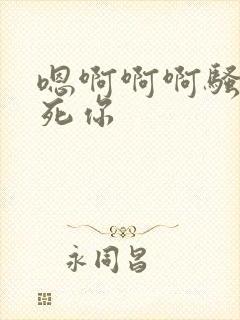 嗯啊啊啊骚
死你
永同昌